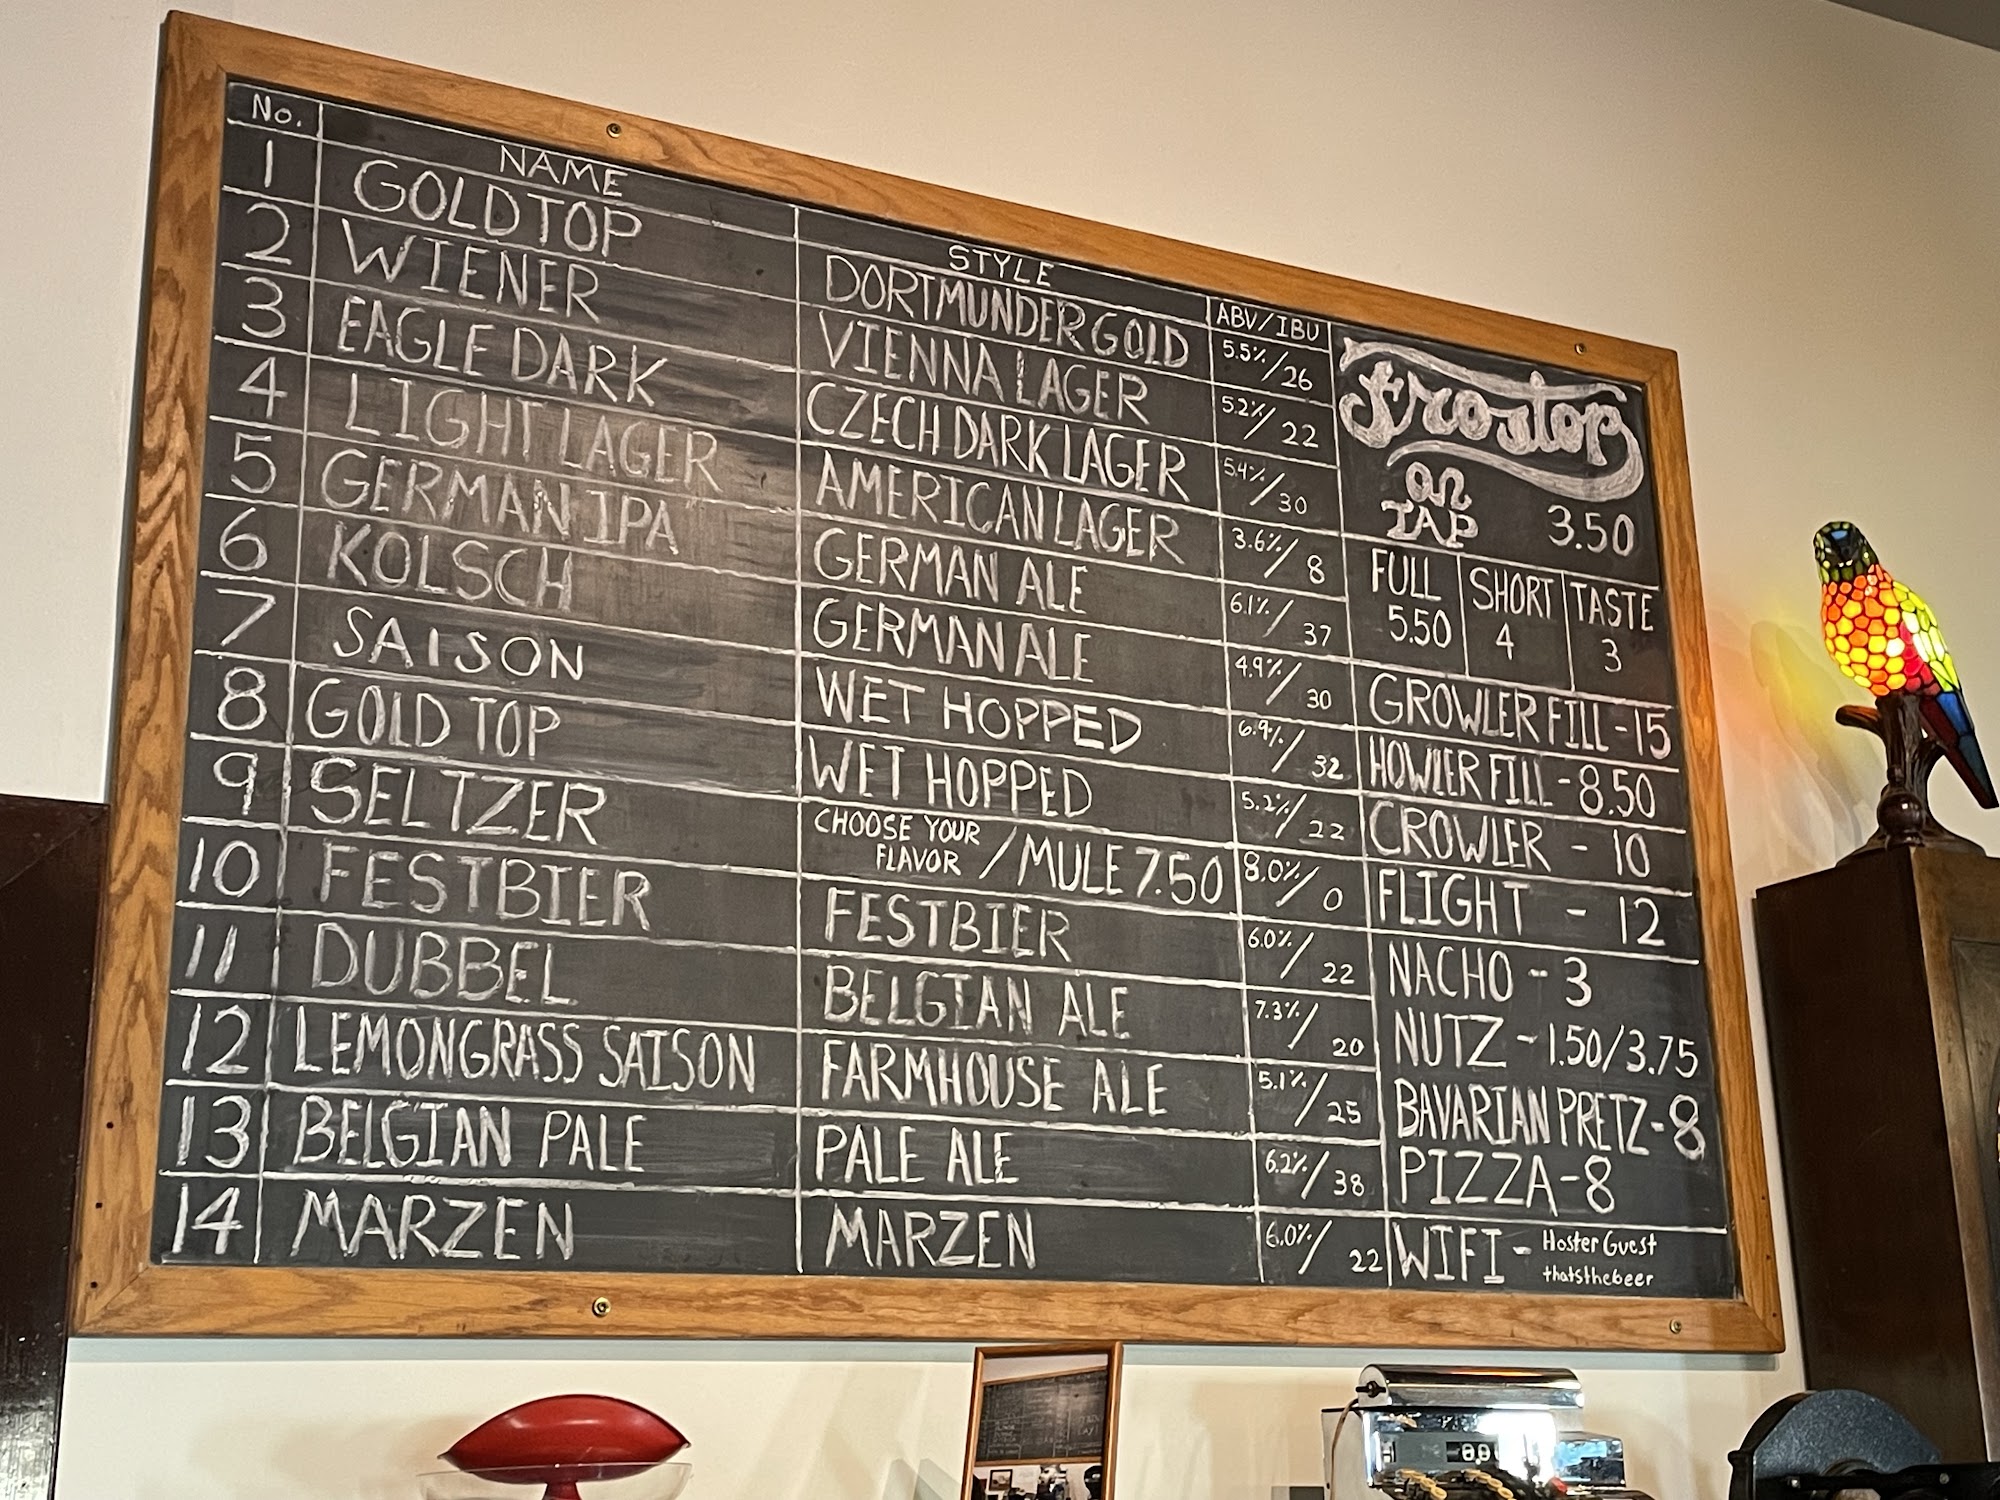 No. NAME STYLE ABV/IBU
1 GOLDTOP DORTMUNDER GOLD 5.5%/26
2 WIENER VIENNA LAGER 5.2%/22
3 EAGLE DARK CZECH DARK LAGER 5.4%/30
4 LIGHT LAGER AMERICAN LAGER 3.6%/8
5 GERMAN IPA GERMAN ALE 6.1%/37
6 KOLSCH GERMAN ALE 4.9%/30
7 SAISON WET HOPPED 6.9%/32
8 GOLD TOP WET HOPPED 5.2%/22
9 SELTZER CHOOSE YOUR FLAVOR /MULE 7.50 8.0%/0
10 FESTBIER FESTBIER 6.0%/22
11 DUBBEL BELGIAN ALE 7.3%/20
12 LEMONGRASS SAISON FARMHOUSE ALE 5.1%/25
13 BELGIAN PALE PALE ALE 6.2%/38
14 MARZEN MARZEN 6.0%/22
Frostop
on
TAP 3.50
FULL SHORT TASTE
5.50 4 3
GROWLER FILL - 15
HOWLER FILL - 8.50
CROWLER - 10
FLIGHT - 12
NACHO - 3
NUTZ - 1.50/3.75
BAVARIAN PRETZ - 8
PIZZA - 8
WIFI - Hoster Guest
thatsthebeer